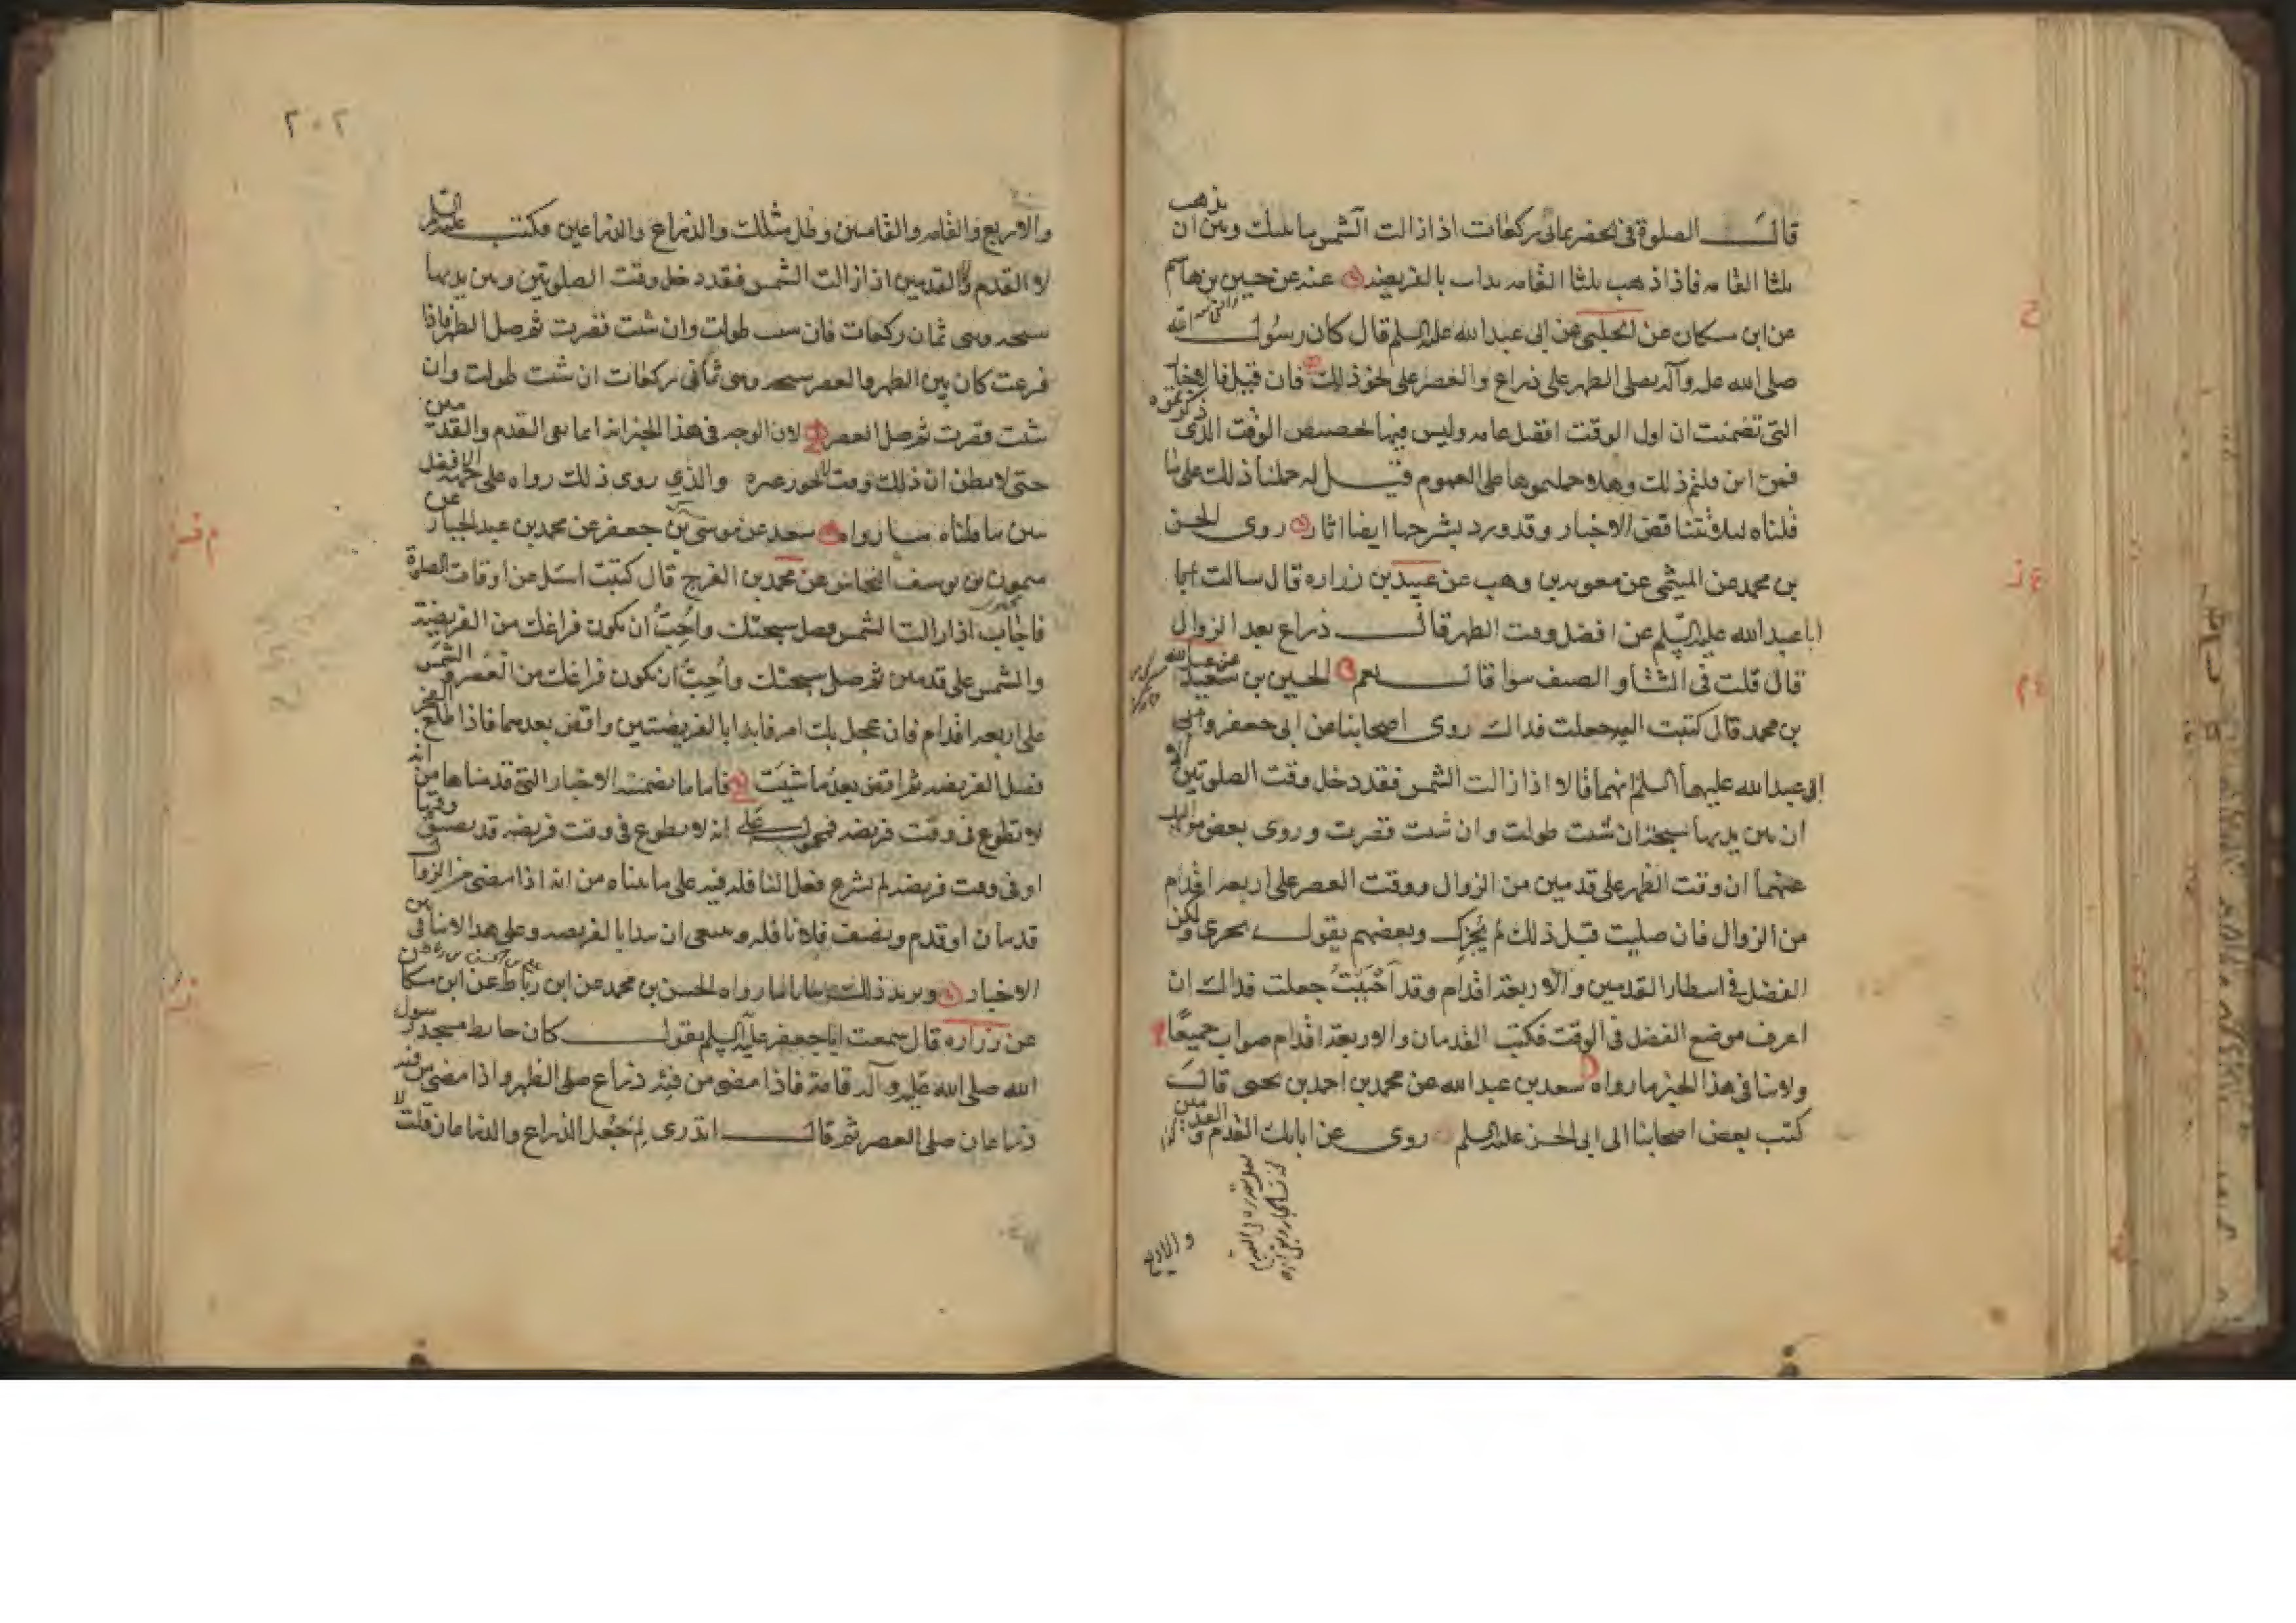 قال الصلوة في الحضر ثماني ركعات اذا زالت الشمس ما بينك وبين ان يذهب
ثلثا القامة فاذا ذهب ثلثا القامة بدات بالفريضة عنه عن حسين بن هاشم
عن ابن مسكان عن الحلبي عن ابي عبدالله عليه السلم قال كان رسول الله
صلى الله عليه وآله يصلى الظهر على ذراع والعصر على نحو ذلك فان قيل فالاخبار
التي تضمنت ان اول الوقت افضل عامه وليس فيها تخصيص الوقت الذي ذكرتموه
فمن اين قلتم ذلك وهلا حملتموها على العموم قيل له حملنا ذلك على ما
قلناه لئلا تتناقض الاخبار وقد ورد بشرحها ايضا اثار روى الحسن
بن محمد عن الميثمي عن معويه بن وهب عن عبيد بن زراره قال سالت ابا
ابا عبدالله عليه السلم عن افضل وقت الظهر قال ذراع بعد الزوال
قال قلت في الشتا و الصيف سوا قال نعم الحسين بن سعيد عن عبد الله
بن محمد قال كتبت اليه جعلت فداك روى اصحابنا عن ابي جعفر و
ابي عبدالله عليهما السلم انهما قالا اذا زالت الشمس فقد دخل وقت الصلوتين الا
ان بين يديها سبحة ان شئت طولت وان شئت قصرت وروى بعض مواليك
عنهما ان وقت الظهر على قدمين من الزوال ووقت العصر على اربعه اقدام
من الزوال فان صليت قبل ذلك لم يجزك وبعضهم يقول يجزى ولكن
الفضل في انتظار القدمين والاربعة اقدام وقد احببت جعلت فداك ان
اعرف موضع الفضل في الوقت فكتب القدمان والاربعة اقدام صواب جميعا
ولا ينافى هذا الخبر ما رواه سعد بن عبدالله عن محمد بن احمد بن يحيى قال
كتب بعض اصحابنا الى ابي الحسن عليه السلم روى عن ابايك القدم والقدمين
والاربع
٢٠٢
والاربع والقامه والقامتين وظل مثلك والذراع والذراعين فكتب عليه السلم
لا القدم ولا القدمين اذا زالت الشمس فقد دخل وقت الصلوتين وبين يديها
سبحه وهي ثمان ركعات فان شئت طولت وان شئت قصرت ثم صل الظهر فاذا
فرغت كان بين الظهر والعصر سبحه وهي ثماني ركعات ان شئت طولت وان
شئت قصرت ثم صل العصر لان الوجه في هذا الخبر انه انما نفى القدم والقدمين
حتى لا يظن ان ذلك وقت لا يجوز غيره والذي روى ذلك رواه على جهة الافضل
بين ما قلناه ما رواه سعد عن موسى بن جعفر عن محمد بن عبد الجبار عن
ميمون بن يوسف النخاس عن محمد بن الفرج قال كتبت اسئل عن اوقات الصلوة
فاجاب اذا زالت الشمس فصل سبحتك واحب ان يكون فراغك من الفريضة
والشمس على قدمين ثم صل سبحتك واحب ان يكون فراغك من العصر والشمس
على اربعه اقدام فان عجل بك امر فابدا بالفريضتين واقض بعدهما فاذا طلع الفجر
فصل الفريضه ثم اقض بعد ما شيت فاما ما تضمنته الاخبار التي قدمناها من انه
لا تطوع في وقت فريضه فمحمول على انه لا تطوع في وقت فريضه قد تضيق وقتها
او في وقت فريضه لم يشرع فعل النافله فيه على ما بيناه من انه اذا مضى من الزوال
قدمان او قدم ونصف فلا نافله وينبغى ان يبدا بالفريضه وعلى هذا لا تنافى بين
الاخبار ويزيد ذلك بيانا ما رواه الحسن بن محمد عن ابن رباط عن ابن مسكان
عن زراره قال سمعت ابا جعفر عليه السلم يقول كان حايط مسجد رسول
الله صلى الله عليه وآله قامة فاذا مضى من فيئه ذراع صلى الظهر واذا مضى من فيئه
ذراعان صلى العصر ثم قال اتدرى لم جعل الذراع والذراعان قلت لا